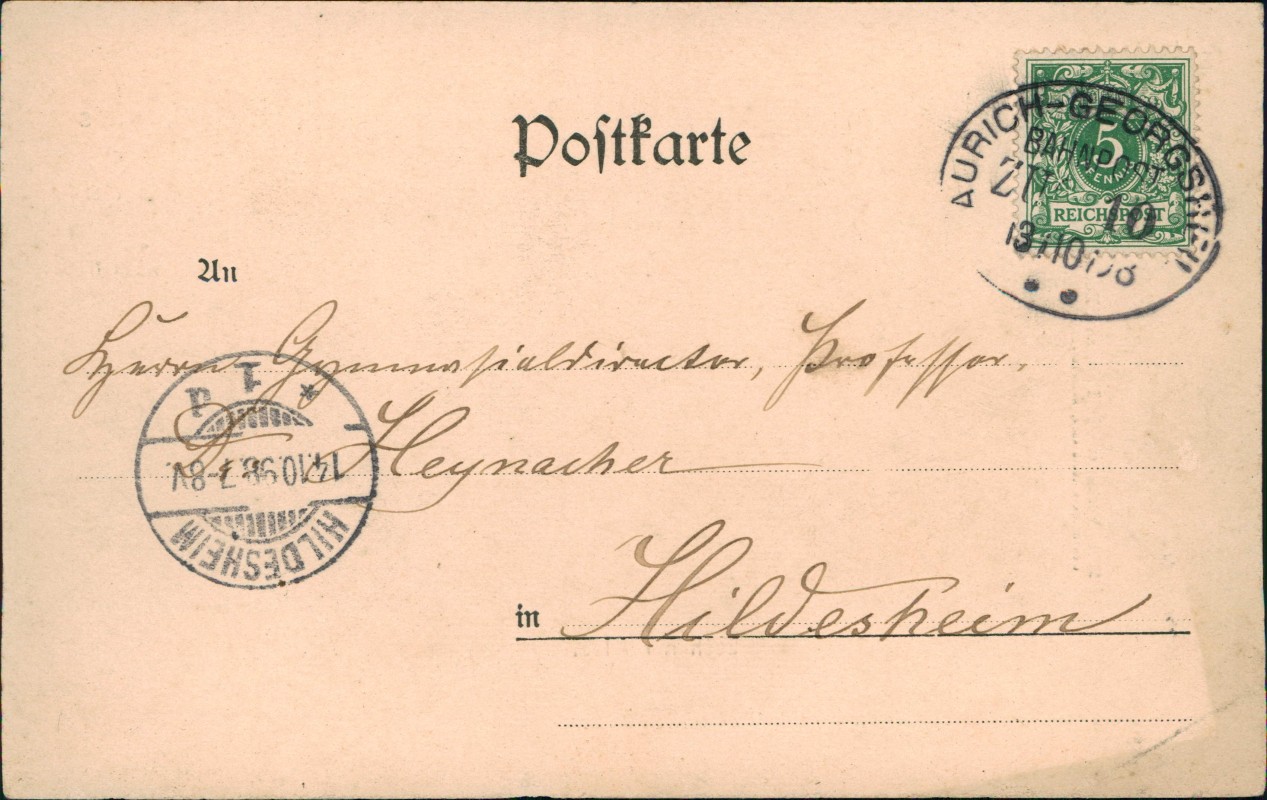 Postkarte
5
PFENNIG
REICHSPOST
AURICH-GEORGSHEIL
BAHNPOST
10
13/10/98
An
Herrn Gymnasialdirector, Professor,
Dr. Heynacher
in Hildesheim
* 1 d
14.10.98.7-8V.
HILDESHEIM